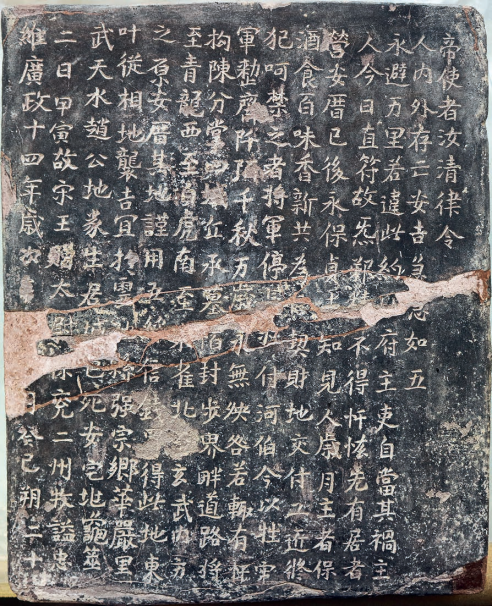 維廣政十四年歲次月癸巳朔二十
二日甲寅故宋王贈太尉徐兗二州牧謚忠
武天水趙公地券生居城邑死安宅地龜筮
叶從相地襲吉宜於雲強宗鄉華嚴里
之原安厝其地謹用五信錢得此地東
至青龍西至白虎南至朱雀北玄武內方
拘陳分掌四域丘承墓陌封步界畔道路將
軍整齊阡陌千秋万歲永無殃咎若輒有忓
犯呵禁之者將軍停收付河伯今以牲牢
酒食百味香新共為契財地交付工匠修
營安厝已後永保貞吉知見人歲月主者保
人今日直符故炁邪精不得忓恡先有居者
永避万里若違此約地府主吏自當其禍主
人內外存亡安吉急急如五
帝使者汝清律令